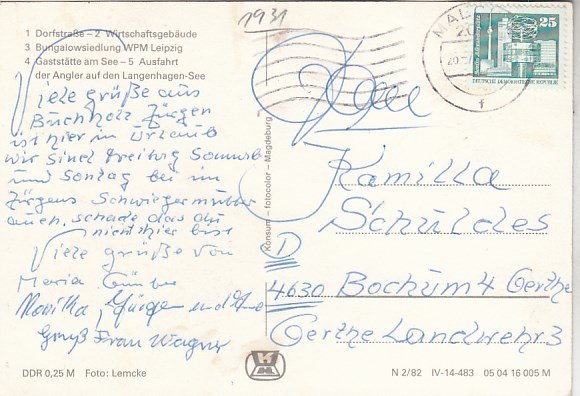 1931
1 Dorfstraße – 2 Wirtschaftsgebäude
3 Bungalowsiedlung WPM Leipzig
4 Gaststätte am See – 5 Ausfahrt
der Angler auf den Langenhagen-See
Viele grüße aus
Buchholz Jürgen
ist hier in Urlaub
wir sind Freitag Sonnab
und Sontag bei im
Jürgens Schwiegermutter
auch, schade das du
nicht hier bist
Viele grüße von
Maria
Monika, Jürgen und
Gruß Frau Wagner
DDR 0,25 M Foto: Lemcke
Konsum – fotocolor – Magdeburg
MAL
f
25
DEUTSCHE DEMOKRATISCHE REPUBLIK
Kamilla
Schuldes
D
4630 Bochum 4 Gerthe
Gerthe Landwehr 3
N 2/82 IV-14-483 05 04 16 005 M